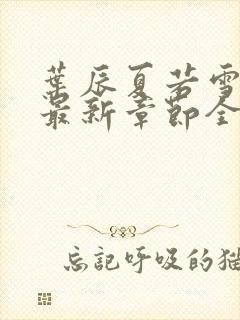 葉辰夏若雪
最新章節全
忘記呼吸的猫